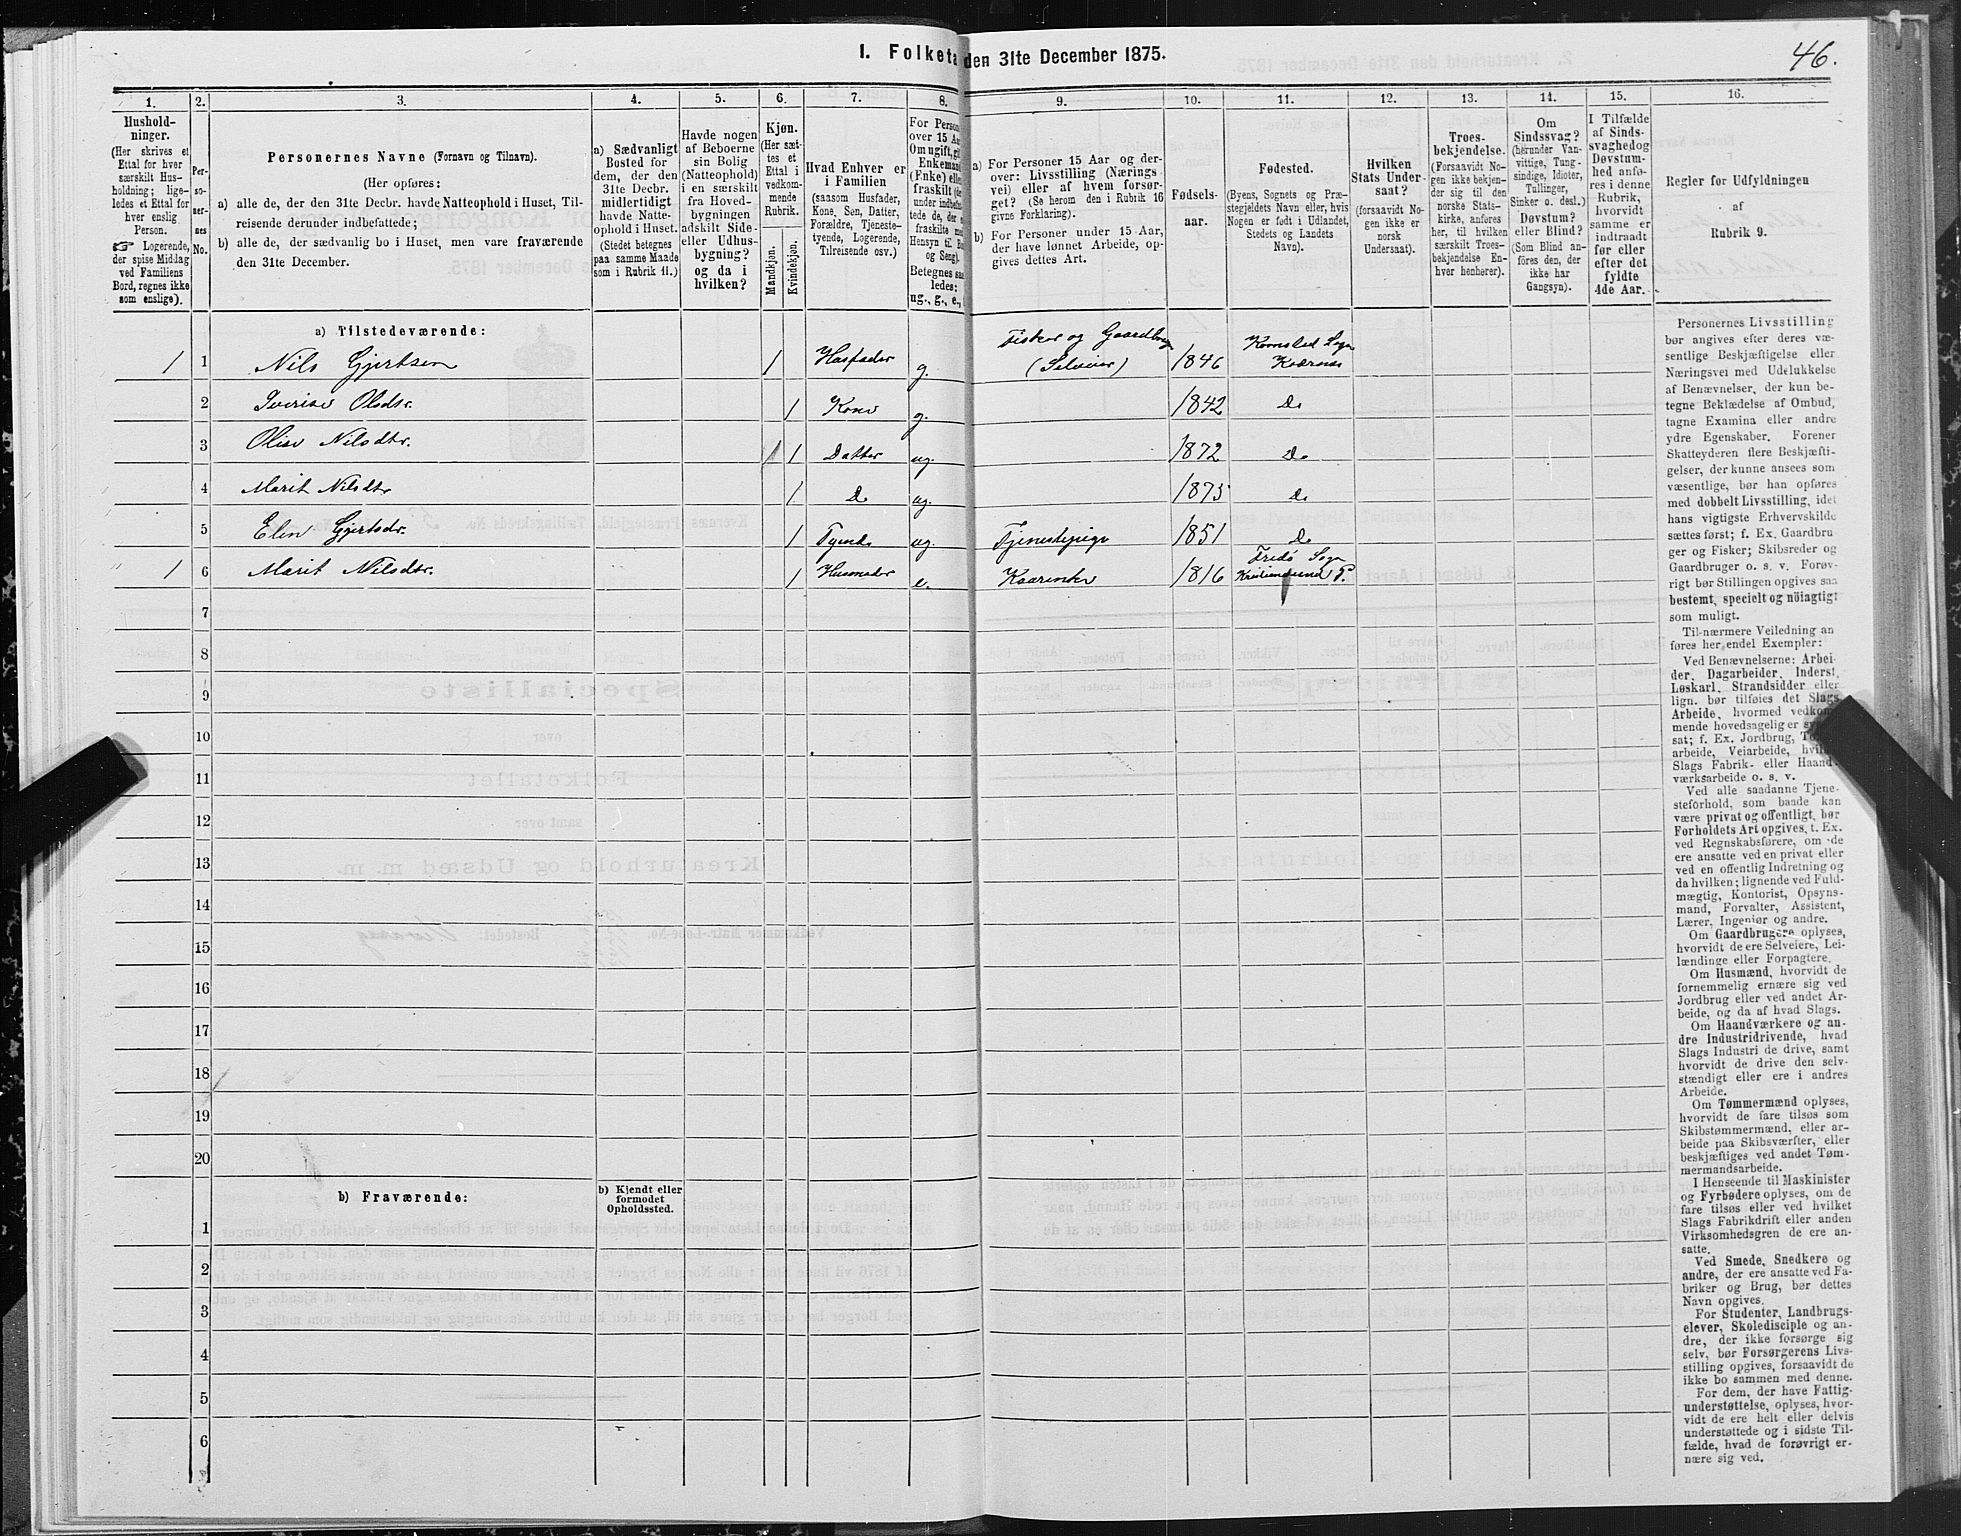 I. Folketa den 31te December 1875.
46.
1.
2.
3.
4.
5.
6.
7.
8.
9.
10.
11.
12.
13.
14.
15.
16.
Hushold-
ninger.
(Her skrives et
Ettal for hver
særskilt Hus-
holdning; lige-
ledes et Ettal for
hver enslig
Person.
☞ Logerende,
der spise Middag
ved Familiens
Bord, regnes ikke
som enslige).
Per-
so-
ner-
nes
No.
Personernes Navne (Fornavn og Tilnavn).
(Her opføres:
a) alle de, der den 31te Decbr. havde Natteophold i Huset, Til-
reisende derunder indbefattede;
b) alle de, der sædvanlig bo i Huset, men vare fraværende
den 31te December.
a) Sædvanligt
Bosted for
dem, der den
31te Decbr.
midlertidigt
havde Natte-
ophold i Huset.
(Stedet betegnes
paa samme Maade
som i Rubrik 11.)
Havde nogen
af Beboerne
sin Bolig
(Natteophold)
i en særskilt
fra Hoved-
bygningen
adskilt Side-
eller Udhus-
bygning?
og da i
hvilken?
Kjøn.
(Her sæt-
tes et
Ettal i
vedkom-
mende
Rubrik.
Mandkjøn.
Kvindekjøn.
Hvad Enhver er
i Familien
(saasom Husfader,
Kone, Søn, Datter,
Forældre, Tjeneste-
tyende, Logerende,
Tilreisende osv.)
For Person
over 15 Aa
Om ugift, gi
Enkemand
(Enke) elle
fraskilt (de
under indbefat
tede de, der
fraskilte me
Hensyn til Bo
og Seng).
Betegnes saa
ledes:
ug., g., e.,
a) For Personer 15 Aar og der-
over: Livsstilling (Nærings
vei) eller af hvem forsør-
get? (Se herom den i Rubrik 16
givne Forklaring).
b) For Personer under 15 Aar,
der have lønnet Arbeide, op-
gives dettes Art.
Fødsels-
aar.
Fødested.
(Byens, Sognets og Præ-
stegjeldets Navn eller, hvis
Nogen er født i Udlandet,
Stedets og Landets
Navn).
Hvilken
Stats Under-
saat?
(forsaavidt No-
gen ikke er
norsk
Undersaat).
Troes-
bekjendelse.
(Forsaavidt No-
gen ikke bekjen-
der sig til den
norske Stats-
kirke, anføres
her, til hvilken
særskilt Troes-
bekjendelse En-
hver henhører).
Om
Sindssvag?
(herunder Van-
vittige, Tung-
sindige, Idioter,
Tullinger,
Sinker o. desl.)
Døvstum?
eller Blind?
(Som Blind an-
føres den, der
ikke har
Gangsyn).
I Tilfælde
af Sinds-
svaghed og
Døvstum-
hed anfø-
res i denne
Rubrik,
hvorvidt
samme er
indtraadt
før eller
efter det
fyldte
4de Aar.
Regler for Udfyldningen
af
Rubrik 9.
a) Tilstedeværende:
1 1 Nils Gjertsen 1 Husfader g. Fisker og Gaardbruger (Selveier) 1846 Kornstad Sogn Kværnæs
2 Olsdtr. 1 Kone g. 1842 Do
3 Nilsdtr. 1 Datter ug. 1872 Do
4 Marit Nilsdtr 1 Do ug. 1875 Do
5 Elen Gjertsdr. 1 Tyende ug. Tjenestepige 1851 Do
1 6 Marit Nilsdtr. 1 Husmoder e. 1816 Fredø Sogn Kristiansund P.
7
8
9
10
11
12
13
14
15
16
17
18
19
20
b) Fraværende:
b) Kjendt eller
formodet
Opholdssted.
1
2
3
4
5
6
Personernes Livsstilling
bør angives efter deres væ-
sentlige Beskjæftigelse eller
Næringsvei med Udelukkelse
af Benævnelser, der kun be-
tegne Beklædelse af Ombud,
tagne Examina eller andre
ydre Egenskaber. Forener
Skatteyderen flere Beskjæfti-
gelser, der kunne ansees som
væsentlige, bør han opføres
med dobbelt Livsstilling, idet
hans vigtigste Erhvervskilde
sættes først; f. Ex. Gaardbru
ger og Fisker; Skibsreder og
Gaardbruger o. s. v. Forøv-
rigt bør Stillingen opgives saa
bestemt, specielt og nöiagtigt
som muligt.
Til nærmere Veiledning an
føres her endel Exempler:
Ved Benævnelserne: Arbei-
der, Dagarbeider, Inderst,
Løskarl, Strandsidder eller
lign. bør tilføies det Slags
Arbeide, hvormed vedkom-
mende hovedsagelig er
sat; f. Ex. Jordbrug,
arbeide, Veiarbeide,
Slags Fabrik- eller Haand-
værksarbeide o. s. v.
Ved alle saadanne Tjene-
steforhold, som baade kan
være privat og offentligt, bør
Forholdets Art opgives, t. Ex.
ved Regnskabsførere, om de
ere ansatte ved en privat eller
ved en offentlig Indretning og
da hvilken; lignende ved Fuld-
mægtig, Kontorist, Opsyns-
mand, Forvalter, Assistent,
Lærer, Ingeniør og andre.
Om Gaardbrugere oplyses,
hvorvidt de ere Selveiere, Lei-
lændinge eller Forpagtere.
Om Husmænd, hvorvidt de
fornemmelig ernære sig ved
Jordbrug eller ved andet Ar-
beide, og da af hvad Slags.
Om Haandværkere og an-
dre Industridrivende, hvad
Slags Industri de drive, samt
hvorvidt de drive den selv-
stændigt eller ere i andres
Arbeide.
Om Tømmermænd oplyses,
hvorvidt de fare tilsøs som
Skibstømmermænd, eller ar-
beide paa Skibsværfter, eller
beskjæftiges ved andet Tøm-
mermandsarbeide.
I Henseende til Maskinister
og Fyrbødere oplyses, om de
fare tilsøs eller ved hvilket
Slags Fabrikdrift eller anden
Virksomhedsgren de ere an-
satte.
Ved Smede, Snedkere og
andre, der ere ansatte ved Fa-
briker og Brug, bør dettes
Navn opgives.
For Studenter, Landbrugs-
elever, Skoledisciple og an-
dre, der ikke forsørge sig
selv, bør Forsørgerens Livs-
stilling opgives, forsaavidt de
ikke bo sammen med denne.
For dem, der have Fattig-
understøttelse, oplyses, hvor-
vidt de ere helt eller delvis
understøttede og i sidste Til-
fælde, hvad de forøvrigt er-
nære sig ved.